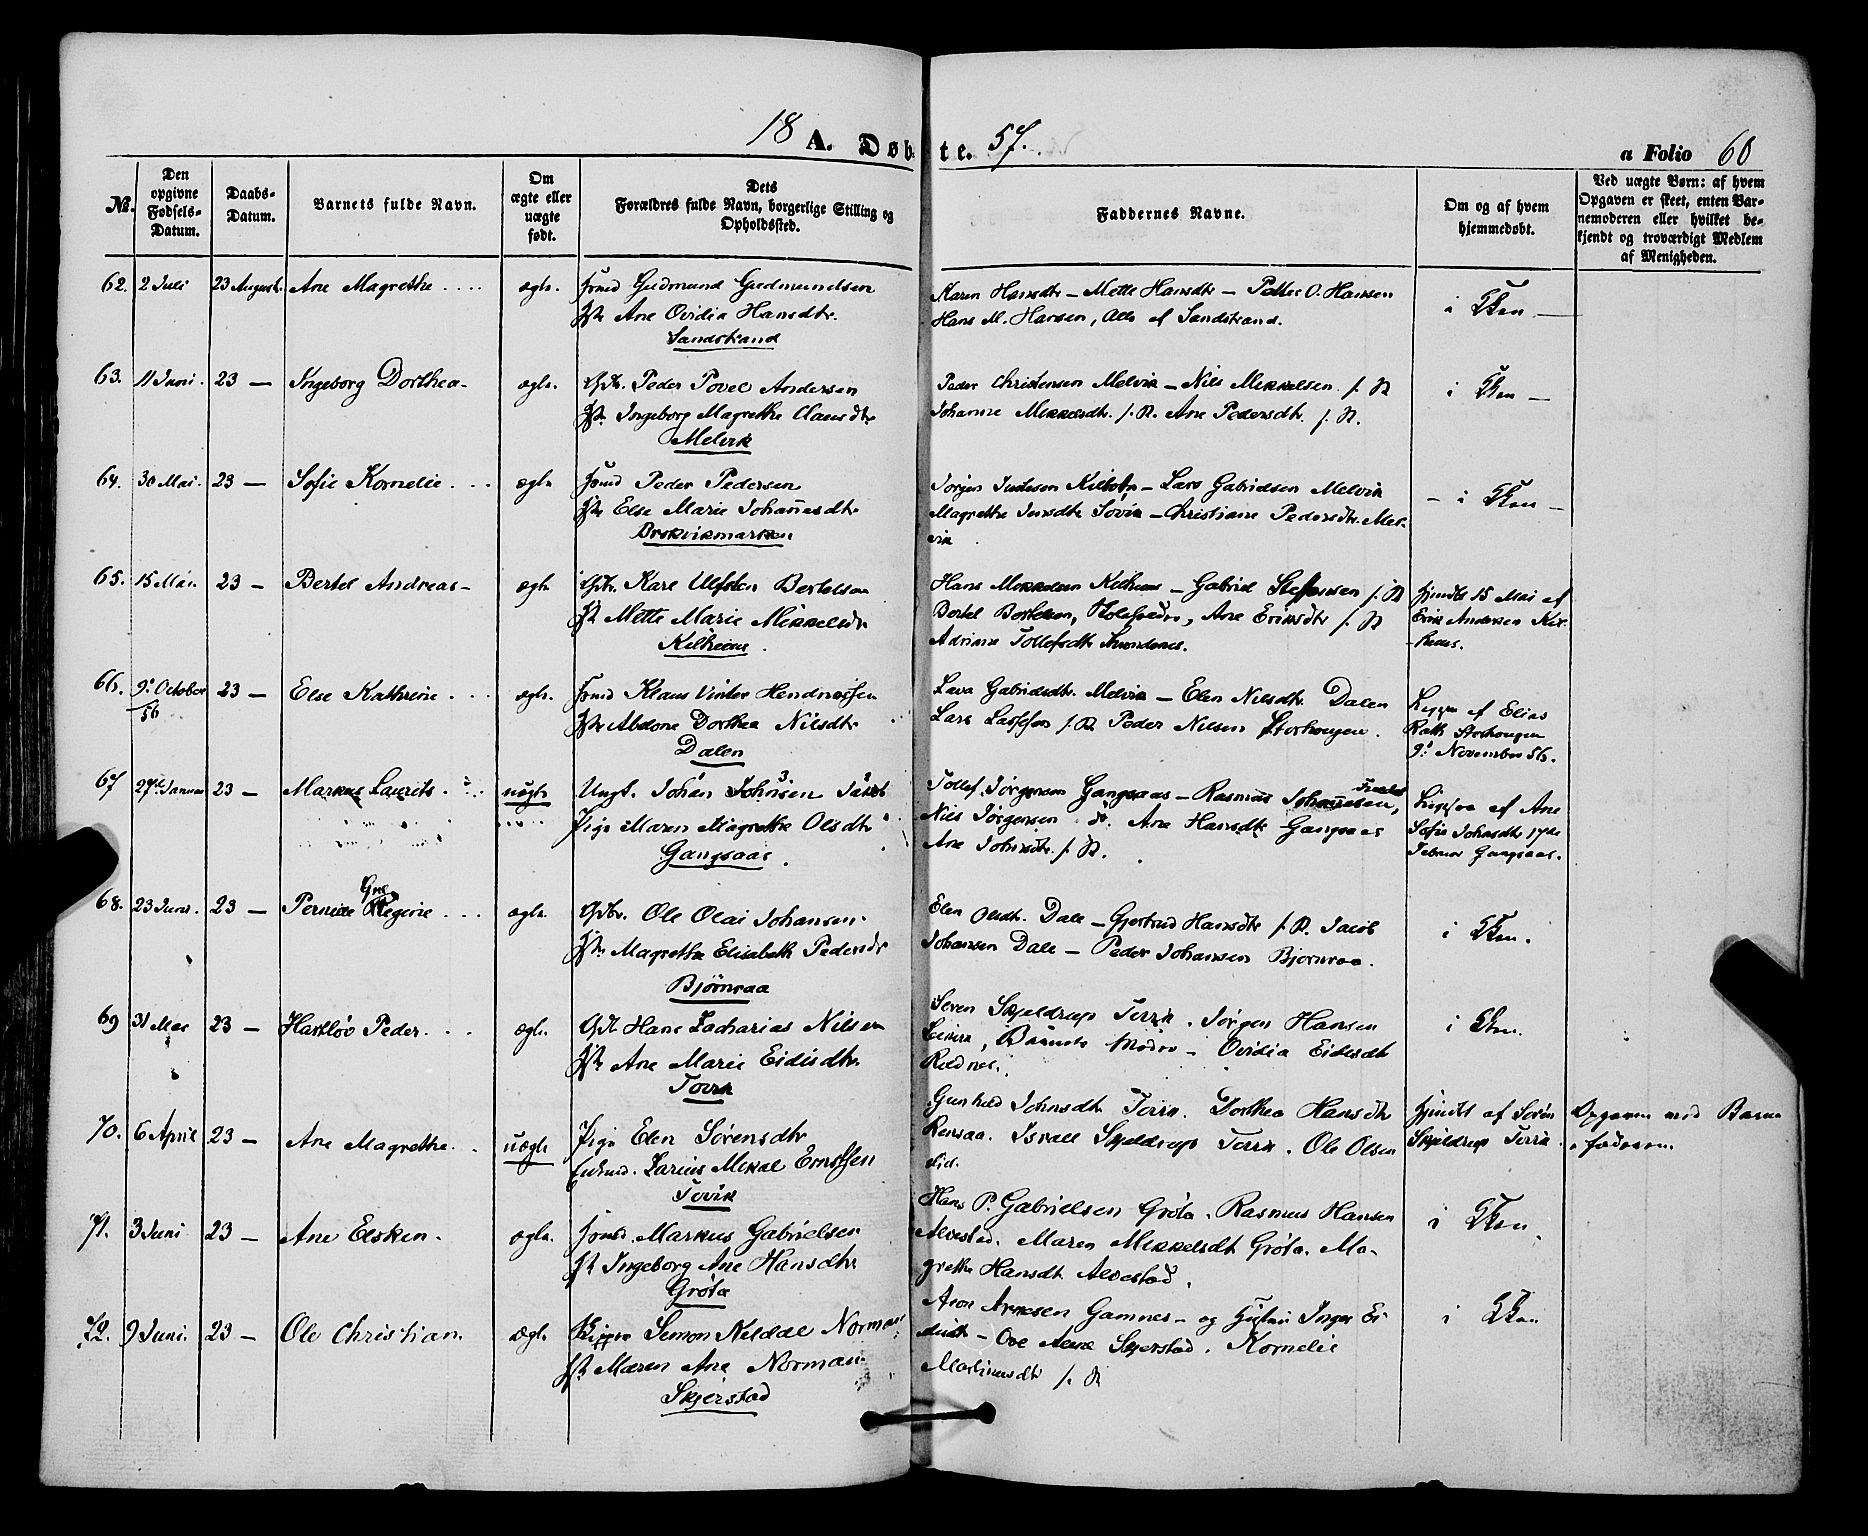 18 A. Døbte. 57.
a Folio 60
No.
Den opgivne Fødsels-Datum.
Daabs-Datum.
Barnets fulde Navn.
Om ægte eller uægte født.
Dets Forældres fulde Navn, borgerlige Stilling og Opholdssted.
Faddernes Navne.
Om og af hvem hjemmedøbt.
Ved uægte Børn: af hvem Opgaven er skeet, enten Barnemoderen eller hvilket bekjendt og troværdigt Medlem af Menigheden.
62. 2 Juli 23 August. Ane Magrethe ægte. Gudmund Gudmundsen
Ane Ovidia Hansdtr.
Sandstrand
Karen Hansdtr – Mette Hansdtr – Petter O. Hansen
Hans M. Hansen, Alle af Sandstrand.
i Kken
63. 11 Juni. 23 — Ingeborg Dorthea ægte. Peder Povel Andersen
Ingeborg Magrethe Clausdtr
Melvik
Peder Christensen Melvik – Nils Mikkelsen
Johanne Mikkelsdtr. Ane Pedersdtr.
i Kken
64. 30 Mai. 23 — Sofie Kornelie ægte Peder Pedersen
Else Marie Johannesdtr
Brokvikmarken
Jørgen Kilbotn – Lars Gabrielsen Melvik
Magrethe Jensdtr Søvik – Christiane Pedersdtr. Mel-
vik
i Kken
65. 15 Mai. 23 — Bertel Andreas ægte Karl Bertelsen
Mette Marie Mikkelsdtr
Kilhuus
Hans Mikkelsen Kilhuus – Gabriel Steffensen
Bertel Bertelsen, Ane Eriksdtr
Adriane Tollefsdtr
hjmdt 15 Mai af
Erik Andersen Kil-
huus.
66. 9de October 56 23 — Else Kathrine ægte. Klaus Vinter Hendriksen
Abelone Dorthea Nilsdtr
Dalen
Lava Gabrielsdtr. Melvik – Elen Nilsdtr. Dalen
Lars Lassesen Peder Nilsen Storhaugen.
af Elias
Rath Storhaugen
9de November 56.
67 27de Januar 23 — Markus Laurits uægte Ungk. Johan Johnsen
Pige Maren Magrethe Olsdtr
Gangsaas.
Tollef Jørgensen Gangsaas – Rasmus Johannesen,
Nils Jørgensen do. Ane Hansdtr Gangsaas
Ane Johnsdtr.
af Ane
Sofie Johnsdtr 17de
Februar Gangsaas.
68. 23 Juni. 23 — Pernille Regine ægte. Ole Olai Johansen
Magrethe Elisabeth Pedersdtr
Bjørnraa
Elen Olsdtr. Dale – Gjertrud Hansdtr Jacob
Johansen Dale – Peder Johansen Bjørnraa.
i Kken.
69 31 Mai 23 — Hartløv Peder ægte. Hans Zacharias Nilsen
Ane Marie Eidisdtr.
Tovik
Søren Skjeldrup Tovik. Jørgen Hansen
Ovidia Eidisdtr
i Kken.
70. 6 April 23 — Ane Magrethe uægte Pige Elen Sørensdtr
Zarius Mikal Ernstsen
Tovik
Gunhild Johnsdtr Tovik. Dorthea Hansdtr
Rensaa. Israel Skjeldrup Tovik. Ole Olsen
hjmdt af Søren
Skjeldrup Tovik.
Opgaven med Barne-
faderen.
71. 3 Juni 23 — Ane Elsken ægte. Markus Gabrielsen
Ingeborg Ane Hansdtr
Grøta
Hans P. Gabrielsen Grøta. Rasmus Hansen
Alvestad. Maren Mikkelsdtr Grøta. Ma-
grethe Hansdtr Alvestad.
i Kken
72. 9 Juni. 23 — Ole Christian ægte. Simon Norman
Maren Ane Norman
Skjerstad
Aron Arnesen Gamnes – og Hustru Inger Ei-
disdtr – Ove Skjerstad. Kornelie
Martinusdtr
i Kken